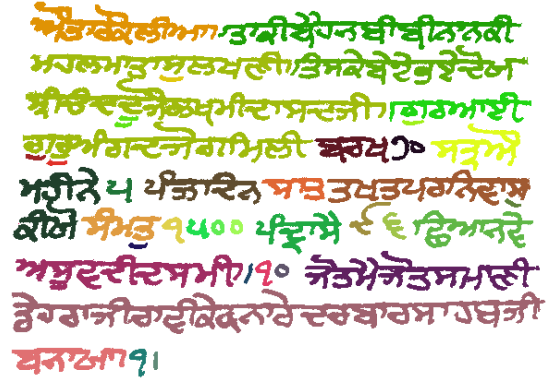 ਤਾਕੀਬੈਹਨਬੀਬੀਨਾਨਕੀ
ਮਹਲਮਾਤਾਸੁਲਖਣੀ।।ਤਿਸਕੇਬੇਟੇਭਏਦੋਖ
ਸ੍ਰੀਚੰਦਦੂਜੈਲਖਮੀਦਾਸਦਜੀ।।ਗੁਰਆਈ
ਗੁਰੂਅੰਗਦਜੋਗਮਿਲੀ ਬਰਖ ੭੦ ਸਤ੍ਰਐ
ਮਹੀਨੇ ੫ ਪੰਜਾਦਿਨ ਸਾਤ ਤਖਤਪਰਨਿਵਾਸੁ
ਕੀਓ ਸੰਮਤੁ ੧੫੦੦ ਪੰਦ੍ਰਾਸੈ ੯੬ ਛਿਆਨਵੇ
ਅਸੂਵਦੀਦਸਮੀ।੧੦ ਜੋਤਮੈਜੋਤਸਮਾਣੀ
ਡੇਹਰਾਜੀਰਾਵੀਕੇਕਨਾਰੇਦਰਬਾਰਸਾਹਬਜੀ
ਬਨਾਆ।੧।